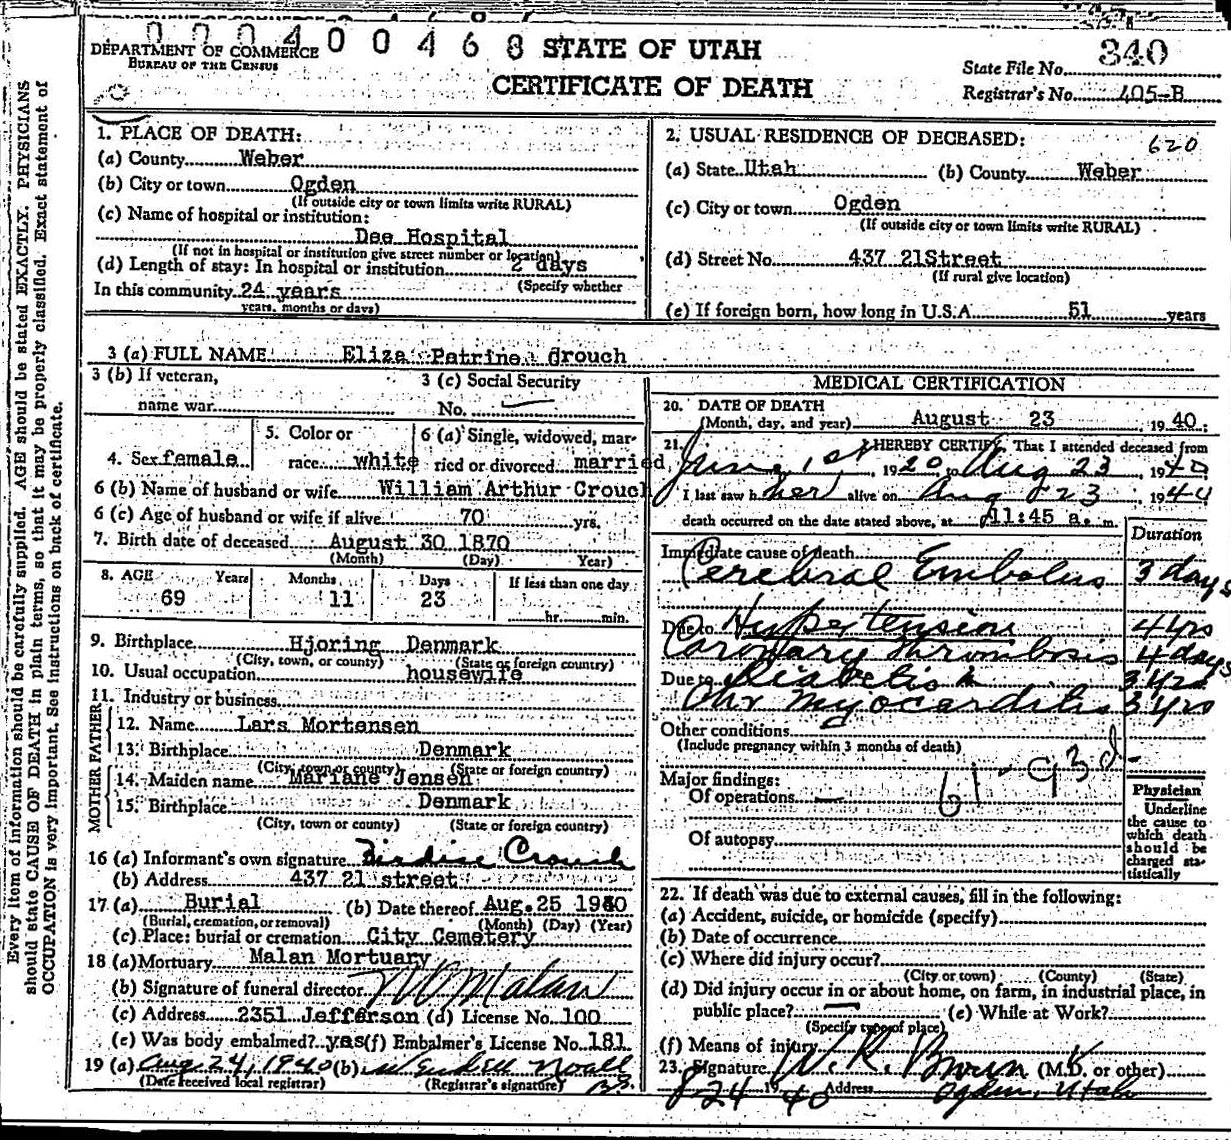 000400468 STATE OF UTAH
DEPARTMENT OF COMMERCE
BUREAU OF THE CENSUS
CERTIFICATE OF DEATH
State File No. 340
Registrar's No. 405-B
Every item of information should be carefully supplied. AGE should be stated EXACTLY. PHYSICIANS
should state CAUSE OF DEATH in plain terms, so that it may be properly classified. Exact statement of
OCCUPATION is very important. See instructions on back of certificate.
1. PLACE OF DEATH:
(a) County Weber
(b) City or town Ogden
(If outside city or town limits write RURAL)
(c) Name of hospital or institution:
Dee Hospital
(If not in hospital or institution give street number or location)
(d) Length of stay: In hospital or institution 2 days
(Specify whether
In this community 24 years
years, months or days)
2. USUAL RESIDENCE OF DECEASED: 620
(a) State Utah (b) County Weber
(c) City or town Ogden
(If outside city or town limits write RURAL)
(d) Street No. 437 21Street
(If rural give location)
(e) If foreign born, how long in U.S.A. 51 years
3 (a) FULL NAME Eliza Patrine Crouch
3 (b) If veteran,
name war
3 (c) Social Security
No.
4. Sex female
5. Color or
race white
6 (a) Single, widowed, mar-
ried or divorced married
6 (b) Name of husband or wife William Arthur Crouch
6 (c) Age of husband or wife if alive 70 yrs.
7. Birth date of deceased August 30 1870
(Month) (Day) Year)
8. AGE Years Months Days If less than one day
69 11 23 hr. min.
9. Birthplace Hjoring Denmark
(City, town, or county) (State or foreign country)
10. Usual occupation housewife
11. Industry or business
FATHER
12. Name Lars Mortensen
13. Birthplace Denmark
(City, town or county) (State or foreign country)
MOTHER
14. Maiden name Mariane Jensen
15. Birthplace Denmark
(City, town or county) (State or foreign country)
16 (a) Informant's own signature Crouch
(b) Address 437 21 street
17 (a) Burial (b) Date thereof Aug. 25 1940
(Burial, cremation, or removal) (Month) (Day) (Year)
(c) Place: burial or cremation City Cemetery
18 (a) Mortuary Malan Mortuary
(b) Signature of funeral director Malan
(c) Address 2351 Jefferson (d) License No. 100
(e) Was body embalmed? yes (f) Embalmer's License No. 181
19 (a) Aug 24, 1940 (b)
(Date received local registrar) (Registrar's signature)
MEDICAL CERTIFICATION
20. DATE OF DEATH
(Month, day, and year) August 23 1940.
21. I HEREBY CERTIFY, That I attended deceased from
June 1st, 1920 to Aug 23 1940
I last saw her alive on Aug 23, 1940
death occurred on the date stated above, at 11:45 a. m.
Duration
Immediate cause of death
Cerebral Embolus 3 days
Due to Hypertension 4 yrs
Coronary Thrombosis 4 days
Due to Diabetis 3 yrs
Chr Myocarditis 3 yrs
Other conditions
(Include pregnancy within 3 months of death)
61-93d
Major findings:
Of operations
Of autopsy
Physician
Underline
the cause to
which death
should be
charged sta-
tistically
22. If death was due to external causes, fill in the following:
(a) Accident, suicide, or homicide (specify)
(b) Date of occurrence
(c) Where did injury occur?
(City or town) (County) (State)
(d) Did injury occur in or about home, on farm, in industrial place, in
public place? (e) While at Work?
(Specify type of place)
(f) Means of injury
23. Signature W. R. Brown (M.D. or other)
8-24 1940 Address Ogden, Utah